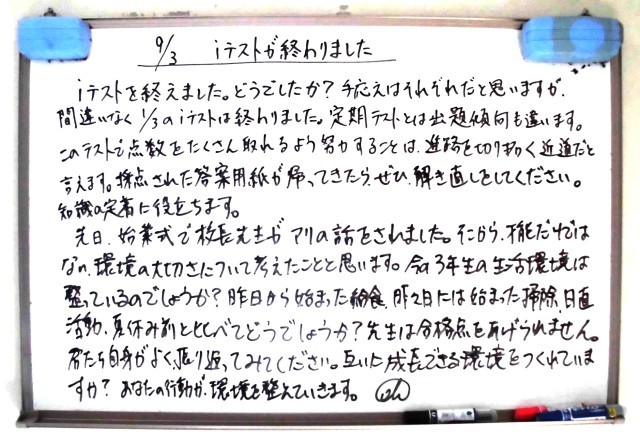 9/3 iテストが終わりました
iテストを終えました。どうでしたか？手応えはそれぞれだと思いますが、
間違いなく1/3のiテストは終わりました。定期テストとは出題傾向も違います。
このテストで点数をたくさん取れるよう努力することは、進路を切り拓く近道だと
言えます。採点された答案用紙が帰ってきたら、ぜひ、解き直しをしてください。
知識の定着に役立ちます。
先日、始業式で校長先生がアリの話をされました。そこから、才能だけでは
ない、環境の大切さについて考えたことと思います。今の3年生の生活環境は
整っているのでしょうか？昨日から始まった給食、昨々日には始まった掃除、日直
活動、夏休み前と比べてどうでしょうか？先生は合格点をあげられません。
君たち自身がよく振り返ってみてください。互いに成長できる環境をつくれていま
すか？あなたの行動が、環境を整えていきます。